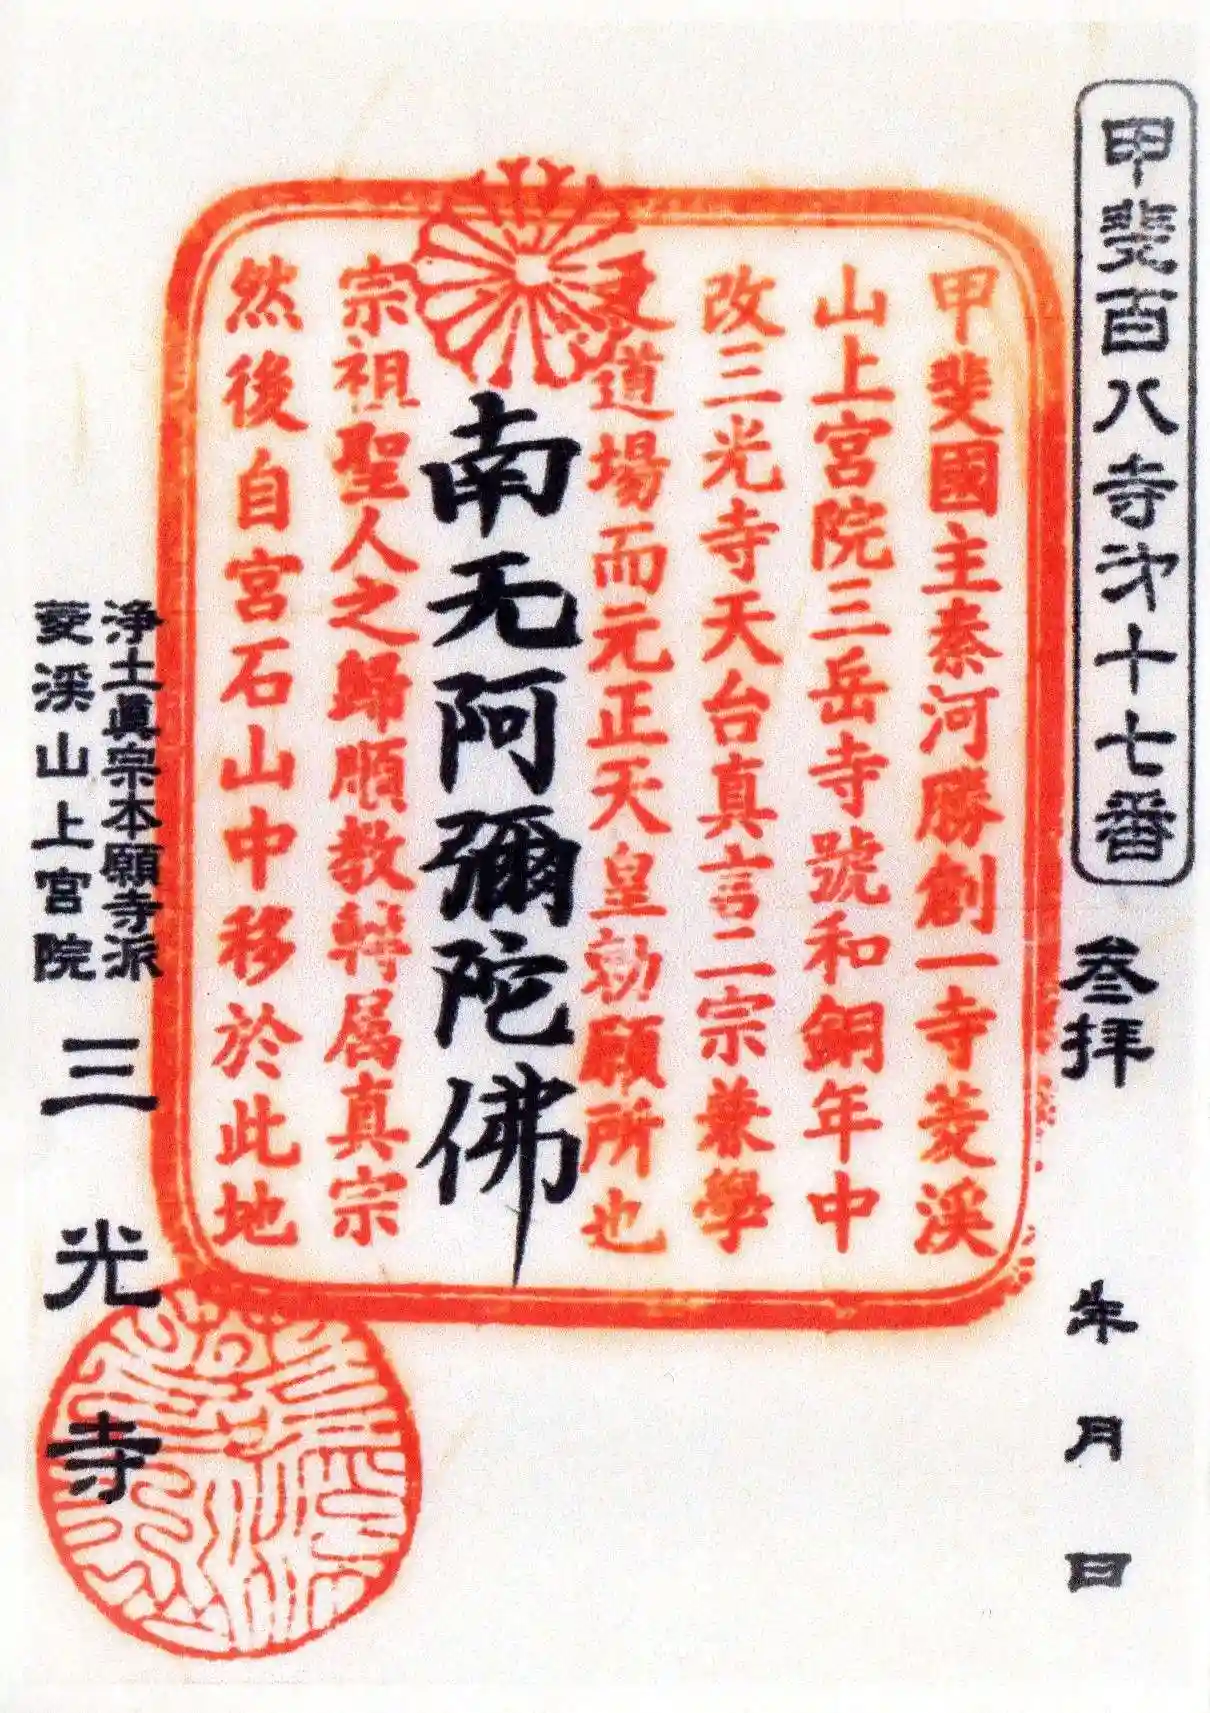 甲斐百八寺第十七番
參拝
年 月 日
甲斐國主秦河勝創一寺菱渓
山上宮院三岳寺號和銅年中
改三光寺天台真言二宗兼學
之道場而元正天皇勅願所也
南无阿彌陀佛
宗祖聖人之歸順教轉属真宗
然後自宮石山中移於此地
浄土眞宗本願寺派
菱渓山上宮院
三光寺